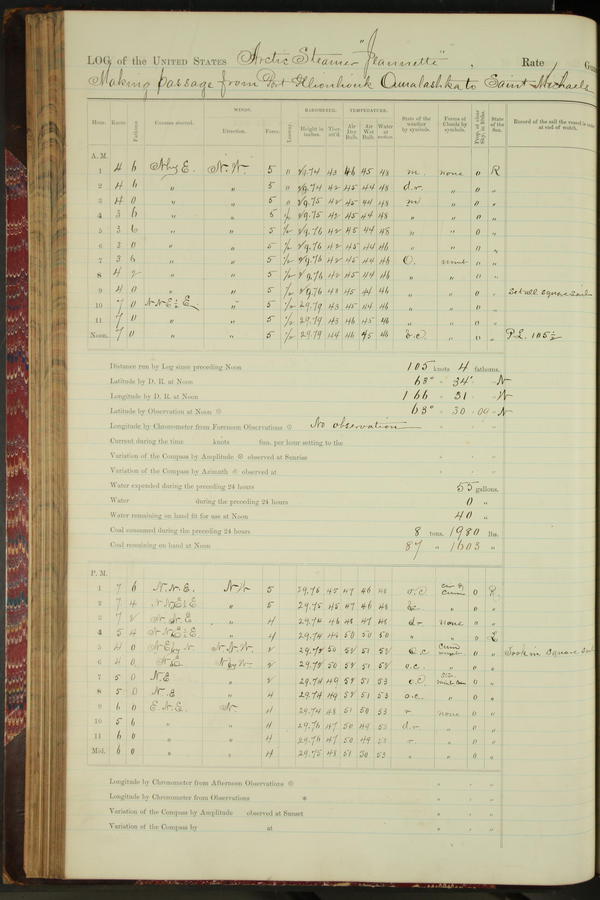 LOG of the UNITED STATES Arctic Steamer "Jeannette", Rate
Making passage from Port Oonalashka to Saint Michaels
WINDS. BAROMETER. TEMPERATURE.
Hour. Knots. Fathoms. Courses steered. Direction. Force. Leeway. Height in inches. Ther. att'd. Air Dry Bulb. Air Wet Bulb. Water at surface. State of the weather by symbols. Forms of Clouds by symbols. Prop. of clear Sky, in 10ths. State of the Sea. Record of the sail the vessel is under at end of watch.
A. M.
1 4 6 N by E. N. W. 5 " 29.74 43 46 45 48 m. none 0 R
2 4 6 " " 5 " 29.74 42 45 44 48 d.r. " 0 "
3 4 0 " " 5 " 29.75 42 45 44 48 m " 0 "
4 3 6 " " 5 1/2 29.75 42 45 44 48 " " 0 "
5 3 6 " " 5 1/2 29.76 42 45 44 48 " " 0 "
6 3 0 " " 5 1/2 29.76 42 45 44 46 " " 0 "
7 3 6 " " 5 1/2 29.76 42 45 44 46 O. " 0 "
8 4 2 " " 5 1/2 29.76 42 45 44 46 " " 0 "
9 4 0 " " 5 1/2 29.76 43 45 44 46 " " 0 " Set all square sail
10 7 0 N N E 1/2 E " 5 1/2 29.79 43 45 44 46 " " 0 "
11 7 0 " " 5 1/2 29.79 43 46 45 46 " " 0 "
Noon. 7 0 " " 5 1/2 29.79 44 46 45 46 o.c. " 0 " P.L. 105 1/2
Distance run by Log since preceding Noon 105 knots 4 fathoms.
Latitude by D. R. at Noon 63° 34' N
Longitude by D. R. at Noon 166 31 W
Latitude by Observation at Noon 63° 30 00 N
Longitude by Chronometer from Forenoon Observations No observation
Current during the time knots fms. per hour setting to the
Variation of the Compass by Amplitude observed at Sunrise
Variation of the Compass by Azimuth observed at
Water expended during the preceding 24 hours 55 gallons.
Water during the preceding 24 hours 0 "
Water remaining on hand fit for use at Noon 40 "
Coal consumed during the preceding 24 hours 8 tons. 1980 lbs.
Coal remaining on hand at Noon 87 " 1603 "
P. M.
1 7 6 N. N. E. NW 5 29.75 45 47 46 48 o.c. 0 R.
2 7 4 N N E 1/2 E " 5 29.75 45 47 46 48 " 0 "
3 7 2 N. N. E. " 4 29.74 46 48 47 48 d.r none 0 "
4 5 4 N N E 1/2 E " 4 29.74 46 50 50 50 " " 0
5 4 0 N E by N. N. N. W. 2 29.75 50 52 51 52 o.c 0 " Took in Square Sail
6 4 0 N by W 2 29.75 50 52 51 52 o.c. " 0 "
7 5 0 N. E " 2 29.74 49 52 51 53 o.c. 0 "
8 5 0 N. E " 4 29.74 49 52 51 53 o.c. " 0 "
9 6 0 E. N. E. N 4 29.74 48 51 50 53 r none 0 "
10 5 6 " " 4 29.76 47 50 49 53 d.r. " 0 "
11 6 0 " " 4 29.76 47 50 49 53 r " 0 "
Mid. 6 0 " " 4 29.75 48 51 50 53 " " 0 "
Longitude by Chronometer from Afternoon Observations
Longitude by Chronometer from Observations
Variation of the Compass by Amplitude observed at Sunset
Variation of the Compass by at